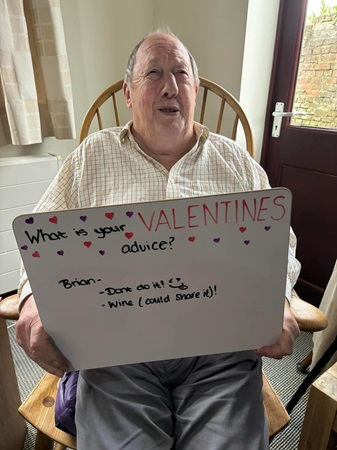 What is your VALENTINES
advice?
Brian-
- Dont do it!
- Wine (could share it)!